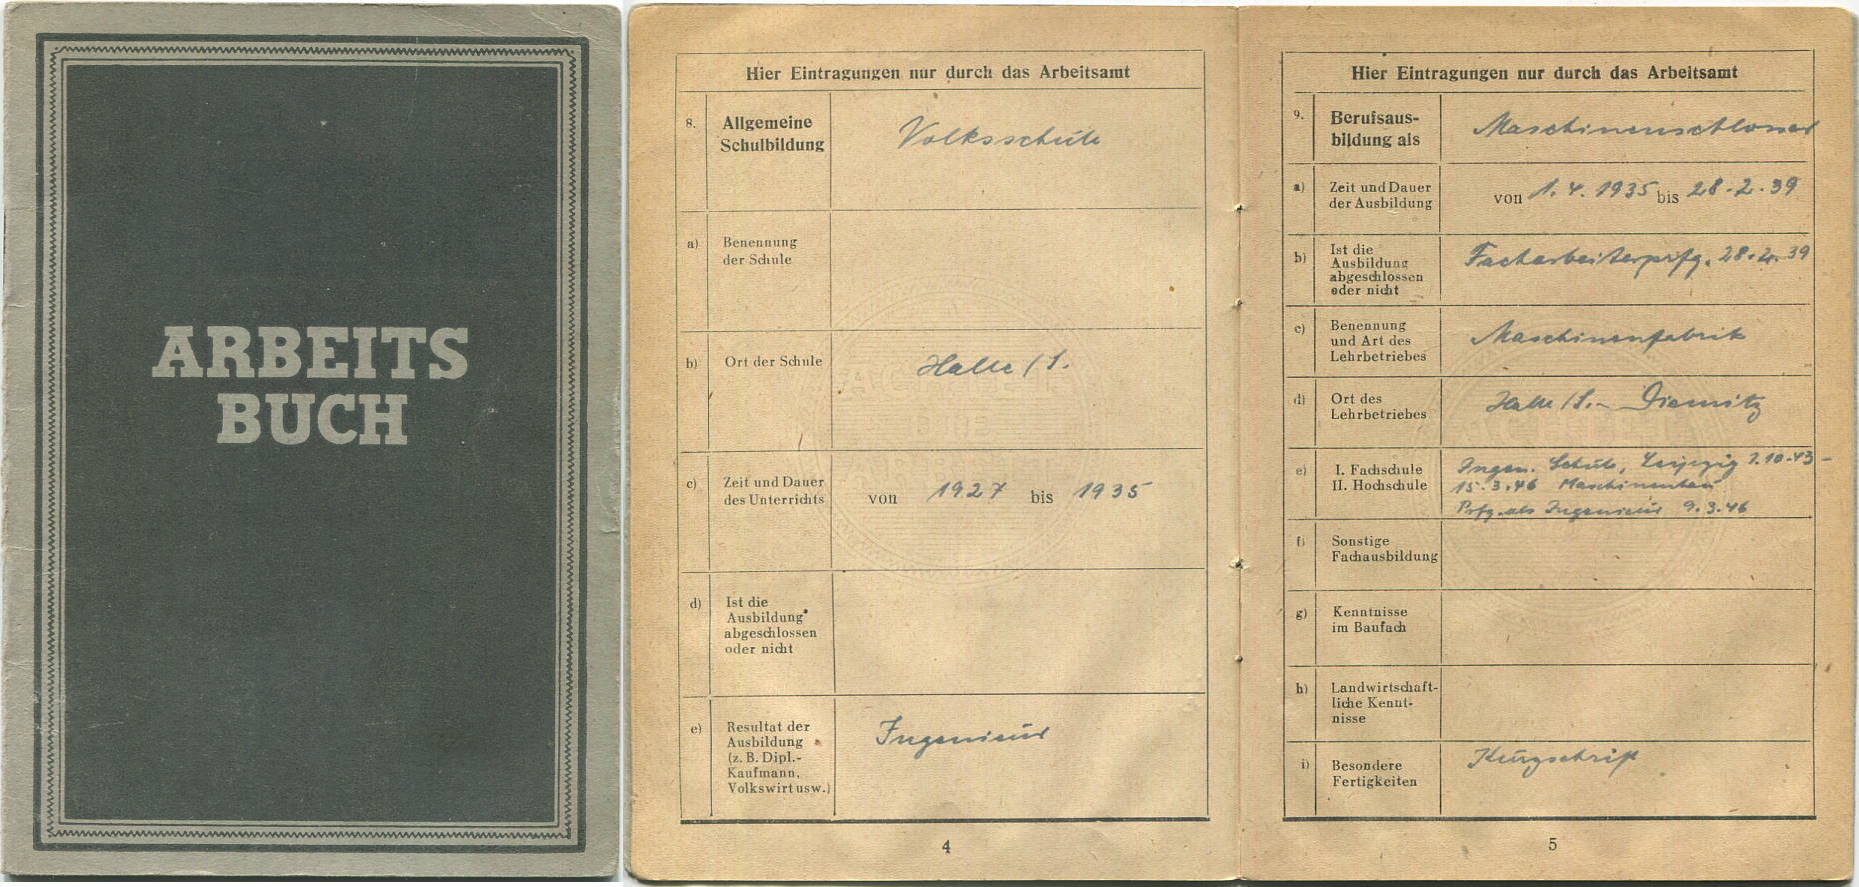 ARBEITS
BUCH
Hier Eintragungen nur durch das Arbeitsamt
8. Allgemeine
Schulbildung
Volksschule
a) Benennung
der Schule
b) Ort der Schule
Halle/S.
c) Zeit und Dauer
des Unterrichts
von 1927 bis 1935
d) Ist die
Ausbildung
abgeschlossen
oder nicht
e) Resultat der
Ausbildung
(z. B. Dipl.-
Kaufmann,
Volkswirt usw.)
Ingenieur
4
Hier Eintragungen nur durch das Arbeitsamt
9. Berufsaus-
bildung als
Maschinenschlosser
a) Zeit und Dauer
der Ausbildung
von 1. 4. 1935 bis 28. 2. 39
b) Ist die
Ausbildung
abgeschlossen
oder nicht
Facharbeiterprfg. 28. 2. 39
c) Benennung
und Art des
Lehrbetriebes
Maschinenfabrik
d) Ort des
Lehrbetriebes
Halle/S.- Diemitz
e) I. Fachschule
II. Hochschule
Ingen. Schule, Leipzig 1.10.43 -
15.3.46 Maschinenbau
Prfg. als Ingenieur 9.3.46
f) Sonstige
Fachausbildung
g) Kenntnisse
im Baufach
h) Landwirtschaft-
liche Kennt-
nisse
i) Besondere
Fertigkeiten
Kurzschrift
5